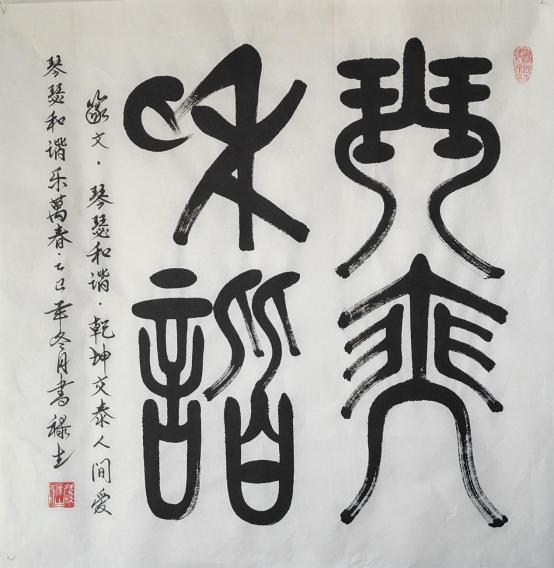 琴瑟
和谐
篆文·琴瑟和谐·乾坤文泰人间爱
琴瑟和谐乐萬春·乙巳年冬月書禄生